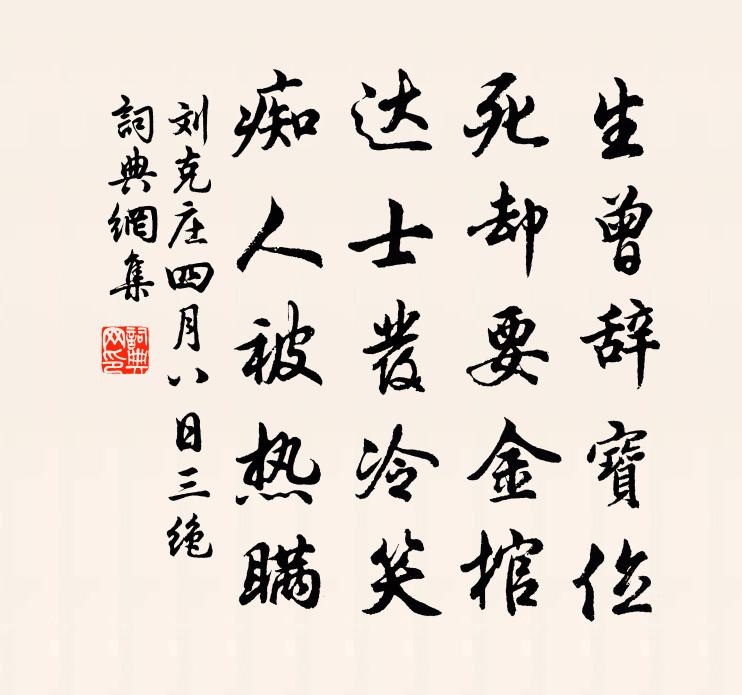 生曾辞寶位
死却要金棺
达士發冷笑
痴人被热瞒
刘克庄四月八日三绝
詞典網集
詞典网印